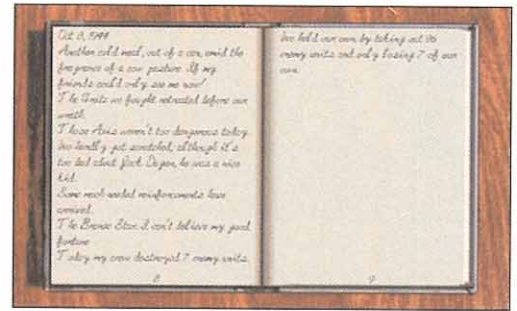 Oct 8, 1944
Another cold meal, out of a can, amid the
fragrance of a cow pasture. If my
friends could only see me now!
The Units we fought retreated before our
wrath.
Those Axis weren't too dangerous today.
We hardly got scratched, although it's
too bad about Jack Degan, he was a nice
kid.
Some much needed reinforcements have
arrived.
The Bronze Star. I can't believe my good
fortune
Today my crew destroyed 7 enemy units.
8
We held our own by taking out
enemy units and only losing 7 of our
own.
9